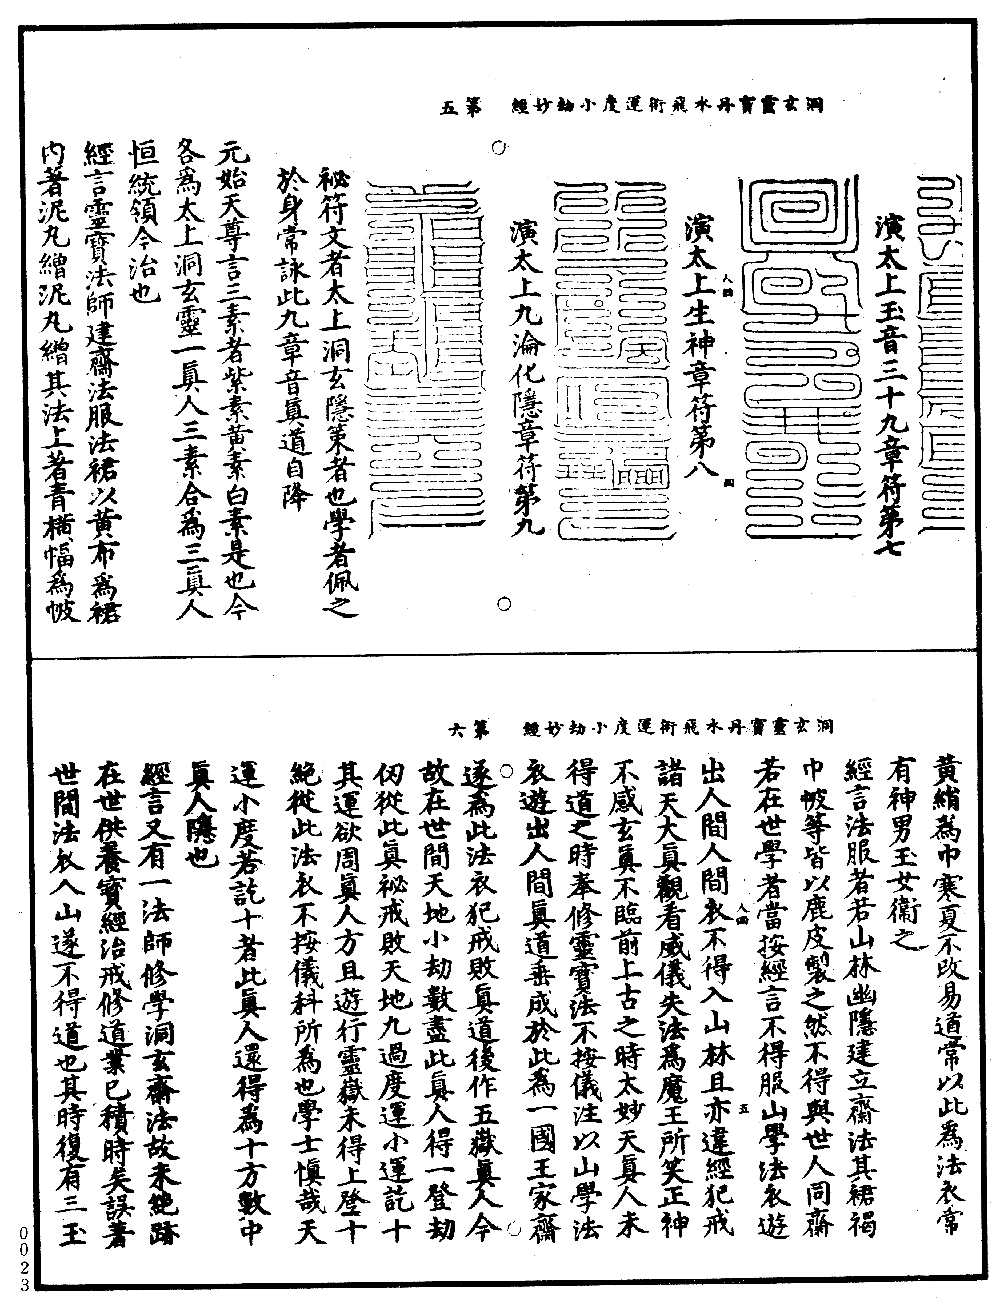 洞玄靈寶丹水飛術運度小劫妙經　第五
演太上玉音三十九章符第七
演太上生神章符第八
演太上九淪化隱章符第九
祕符文者太上洞玄隱策者也學者佩之
於身常詠此九章音真道自降
元始天尊言三素者紫素黃素白素是也今
各爲太上洞玄靈一真人三素合爲三真人
恒統領今治也
經言靈寶法師建齋法服法裙以黃布爲裙
內著泥丸繒泥丸繒其法上著青橫幅爲帔
洞玄靈寶丹水飛術運度小劫妙經　第六
黃綃爲巾寒夏不改易道常以此爲法衣常
有神男玉女衞之
經言法服者若山林幽隱建立齋法其裙褐
巾帔等皆以鹿皮製之然不得與世人同齋
若在世學者當按經言不得服山學法衣遊
出人間人間衣不得入山林且亦違經犯戒
諸天大真觀看威儀失法爲魔王所笑正神
不感玄真不臨前上古之時太妙天真人未
得道之時奉修靈寶法不按儀注以山學法
衣遊出人間真道垂成於此爲一國王家齋
遂爲此法衣犯戒敗真道後作五嶽真人今
故在世間天地小劫數盡此真人得一登劫
仞從此真祕戒敗天地九過度運小運訖十
其運欲周真人方且遊行靈嶽未得上登十
絕從此法衣不按儀科所爲也學士慎哉天
運小度若訖十者此真人還得爲十方數中
真人隱也
經言又有一法師修學洞玄齋法故未絕跡
在世供養寶經治戒修道業已積時矣誤著
世間法衣入山遂不得道也其時復有三玉
0023